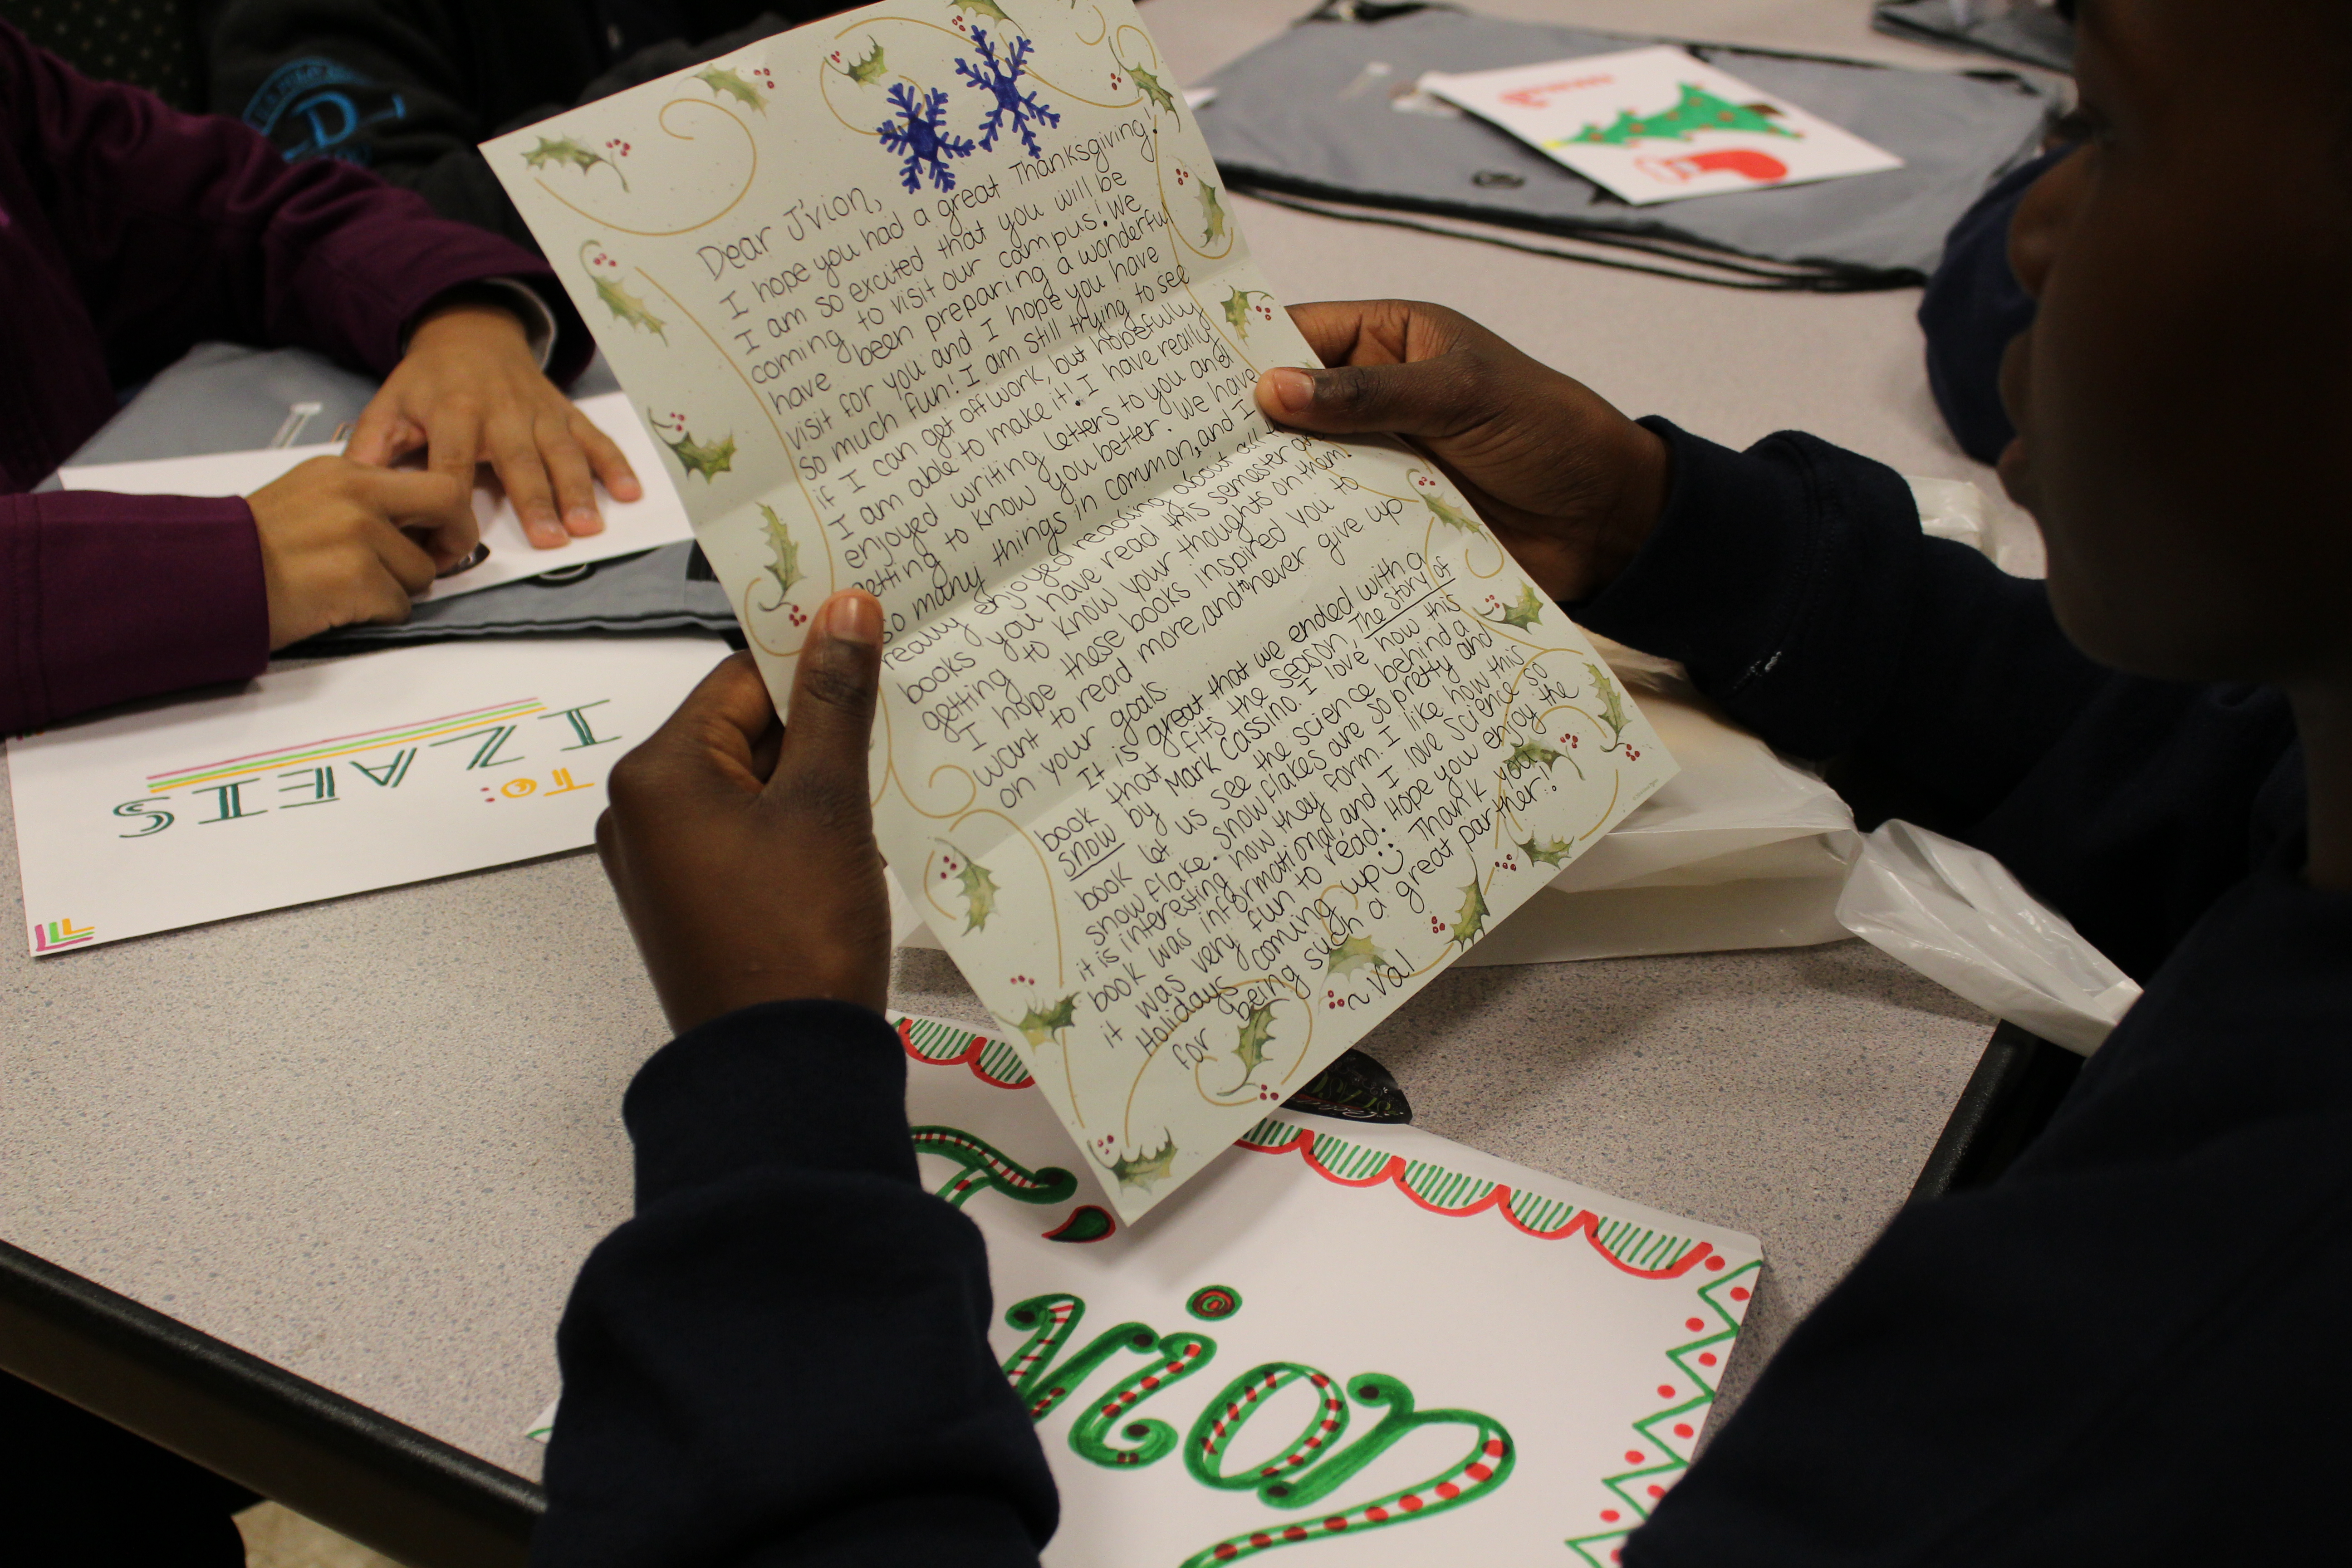 Dear J'vion,
I hope you had a great Thanksgiving!
I am so excited that you will be
coming to visit our campus! We
have been preparing a wonderful
visit for you and I hope you have
so much fun! I am still trying to see
if I can get off work, but hopefully
I am able to make it! I have really
enjoyed writing letters to you and
getting to know you better. We have
so many things in common, and I
really enjoyed reading about all
books you have read this semester
getting to know your thoughts on them!
I hope these books inspired you to
want to read more, and to never give up
on your goals.
It is great that we ended with a
book that fits the season, The Story of
Snow by Mark Cassino. I love how this
book let us see the science behind a
snowflake. Snowflakes are so pretty and
it is interesting how they form. I like how this
book was informational, and I love science so
it was very fun to read. Hope you enjoy the
Holidays coming up :) Thank you
for being such a great partner!
~ Val
TO:
IZAEIS
J'
vion
D